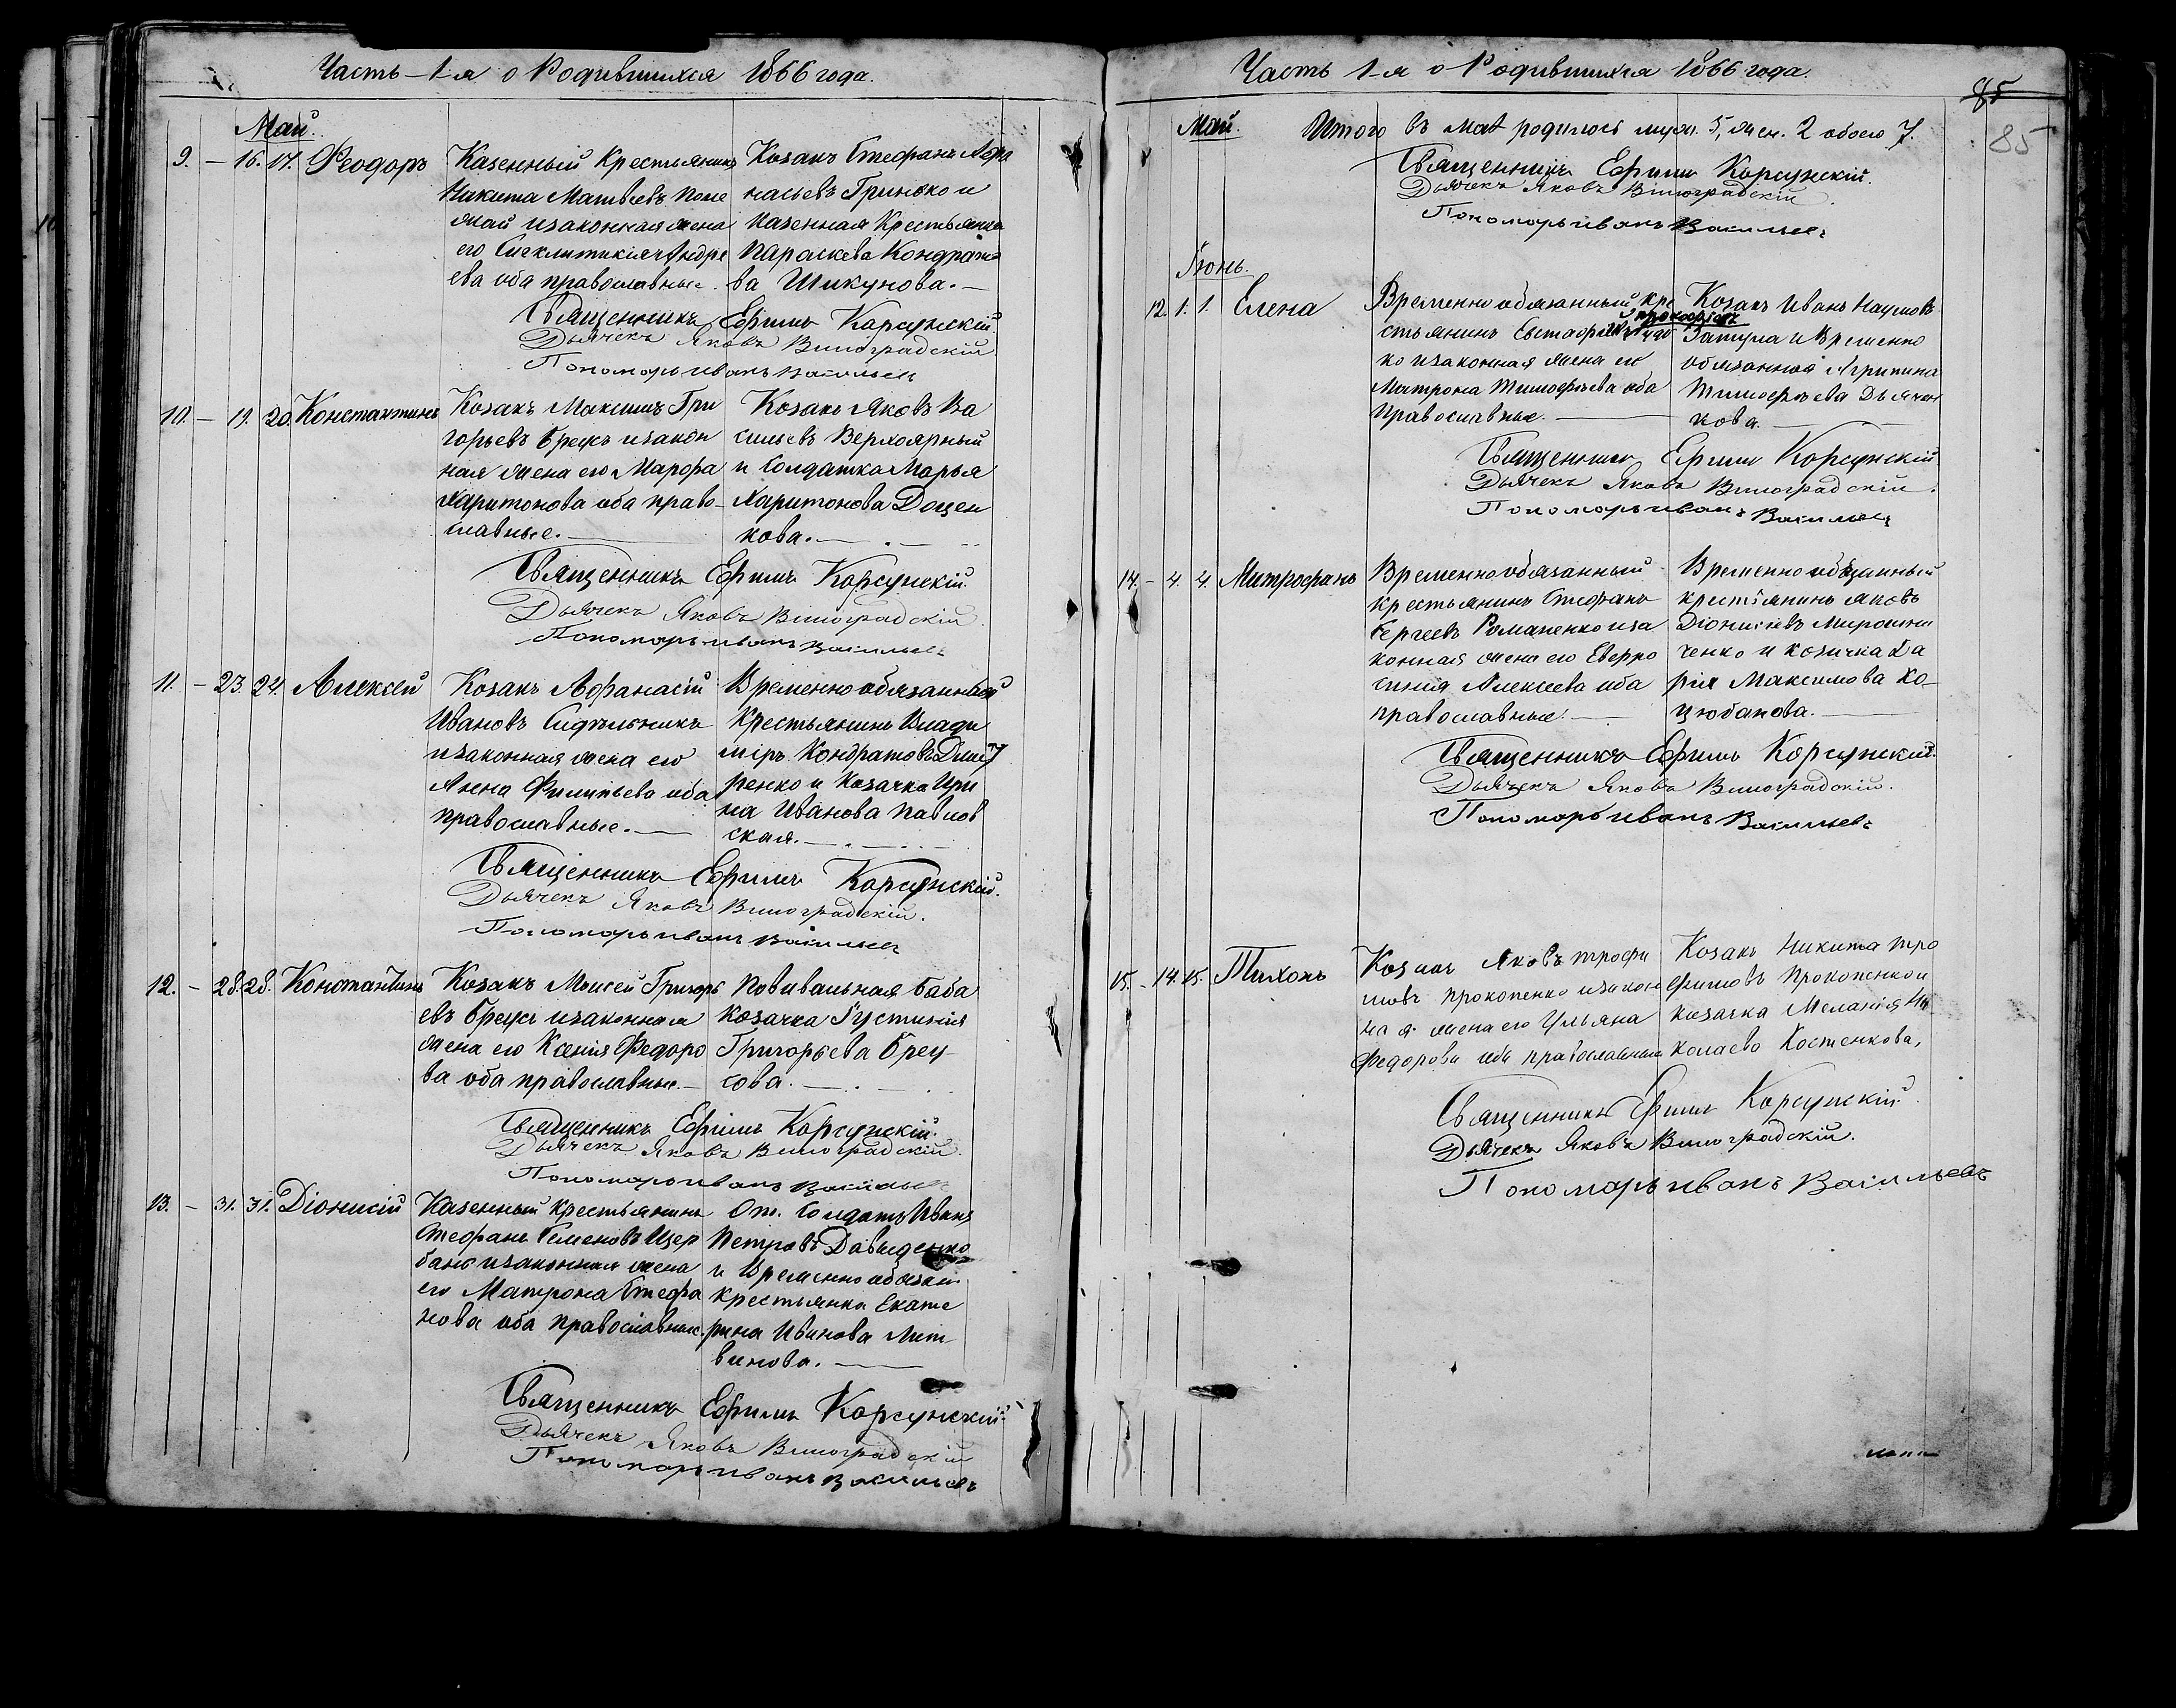 Часть 1-я о Родившихся 1866 года.
Май.
9. — 16. 17. Феодоръ
Казенный Крестьянинъ
Никита Матвѣевъ
и законная жена
его Андре
ева оба православные.
Козакъ Стефанъ Афа
насьевъ Гринько и
Казенная Крестьянка
Параскева Кондрать
ва Шикунова. —
Священникъ Ефимъ Корсунскій.
Дьячекъ Яковъ Виноградскій
Пономарь иванъ Васильевъ
10. — 19. 20. Константинъ
Козакъ Максимъ Гри
горьевъ Бреусъ и закон
ная жена его Марфа
Харитонова оба право-
славные. —
Козакъ Яковъ Ва
сильевъ Верхоярный
и Солдатка Марья
Харитонова Доцен
кова. —
Священникъ Ефимъ Корсунскій.
Дьячекъ Яковъ Виноградскій.
Пономарь иванъ Васильевъ
11. — 23. 24. Алексей
Козакъ Афанасій
Ивановъ Сидѣльникъ
и законная жена его
Анна Филипьева оба
православные. —
Временнообязанный
Крестьянинъ Влади
міръ Кондратовъ Дмит
ренко и Козачка Ири
на Иванова Павлов
ская. —
Священникъ Ефимъ Корсунскій.
Дьячекъ Яковъ Виноградскій.
Пономарь иванъ Васильевъ
12. — 28. 28. Константинъ
Козакъ Моисей Григорь
евъ Бреусъ и законная
жена его Ксенія Федоро
ва оба православные. —
Повивальная баба
Козачка Іустинія
Григорьева Бреу-
сова. —
Священникъ Ефимъ Корсунскій.
Дьячекъ Яковъ Виноградскій.
Пономарь иванъ Васильевъ
13. — 31. 31. Діонисій
Казенный Крестьянинъ
Стефанъ Семеновъ Щер
банъ и законная жена
его Матрона Стефа
нова оба православные.
От. Солдатъ Иванъ
Петровъ Давиденко
и Временно обязан.
крестьянка Екате
рина Иванова Лит
винова. —
Священникъ Ефимъ Корсунскій.
Дьячекъ Яковъ Виноградскій
Пономарь иванъ Васильевъ
Часть 1-я о Родившихся 1866 года.
85
85
Май. Итого въ маѣ родилось муж. 5, жен. 2 обоего 7.
Священникъ Ефимъ Корсунскій.
Дьячекъ Яковъ Виноградскій.
Пономарь иванъ Васильевъ
Іюнь.
12. 1. 1. Елена
Временно обязанный кре
стьянинъ Евстафій
ко и законная жена его
Матрона Тимофѣева оба
православные. —
Козакъ Иванъ Наумовъ
Затула и Временно
обязанная Агрипина
Тимофѣева Дьячен
кова. —
Священникъ Ефимъ Корсунскій
Дьячекъ Яковъ Виноградскій.
Пономарь иванъ Васильевъ
14. — 4. 4. Митрофанъ
Временнообязанный
Крестьянинъ Стефанъ
Сергеевъ Романенко и за
конная жена его Евфро
синія Алексеева оба
православные. —
Временно обязанный
крестьянинъ Яковъ
Діонисіевъ Мирошни
ченко и козачка Да
рія Максимова Ко-
цюбанова. —
Священникъ Ефимъ Корсунскій.
Дьячекъ Яковъ Виноградскій.
Пономарь иванъ Васильевъ
15. — 14. 15. Тихонъ
Козакъ Яковъ трофи
мовъ прокопенко и закон
ная жена его Ульяна
Федорова оба православные
Козакъ Никита тро
фимовъ Прокопенко и
козачка Меланія Ни
колаева Костенкова,
Священникъ Ефимъ Корсунскій
Дьячекъ Яковъ Виноградскій.
Пономарь иванъ Васильевъ